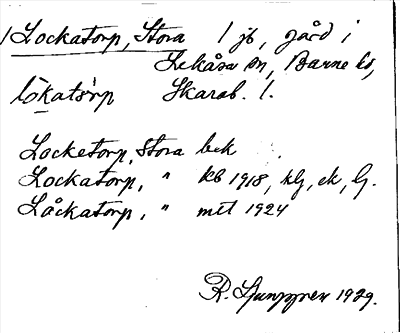 Lockatorp, Stora 1 jb, gård i
Lekåsa sn, Barne hd,
lòkatårp Skarab. l.
Locketorp, Stora bek
Lockatorp, " kb 1918, hfj, ek, lj.
Låckatorp, " mtl 1924
R. Ljunggren 1929.